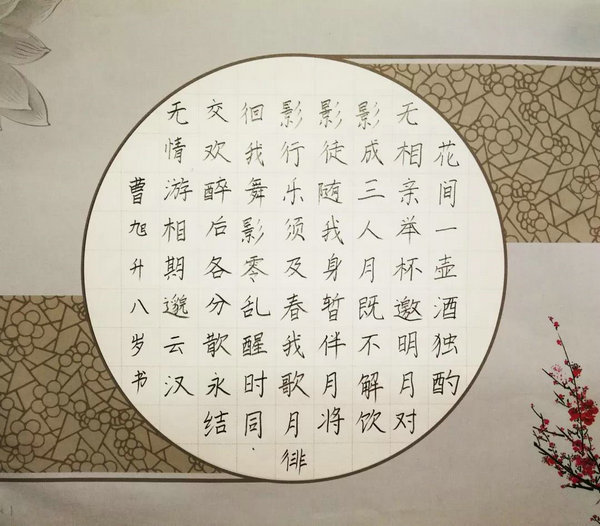 花间一壶酒独酌
无相亲举杯邀明月对
影成三人月既不解饮
影徒随我身暂伴月将
影行乐须及春我歌月徘
徊我舞影零乱醒时同
交欢醉后各分散永结
无情游相期邈云汉
曹旭升八岁书